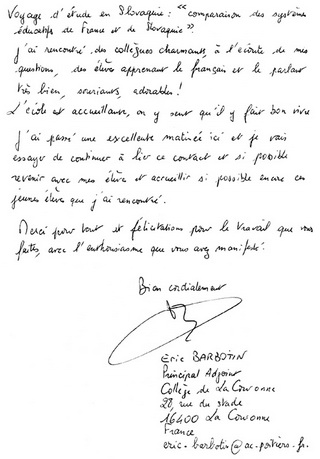 Voyage d'étude en Slovaquie : "comparaison des systèmes
éducatifs de France et de Slovaquie".
J'ai rencontré des collègues charmants, à l'écoute de mes
questions, des élève apprenant le français et le parlant
très bien, souriants, adorables !
L'école et accueillante, on y sent qu'il y fait bon vivre
J'ai passé une excellente matinée ici et je vais
essayer de continuer à lier ce contact et si possible
revenir avec mes élève et accueillir si possible encore ces
jeunes élève que j'ai rencontré.
Merci pour tout et félicitations pour le travail que vous
faites, avec l'enthousiasme que vous avez manifesté.
Bien cordialement
Eric BARBOTIN
Principal Adjoint
Collège de La Couronne
28, rue du stade
16400 La Couronne
France
eric.barbotin@ac.poitiers.fr.